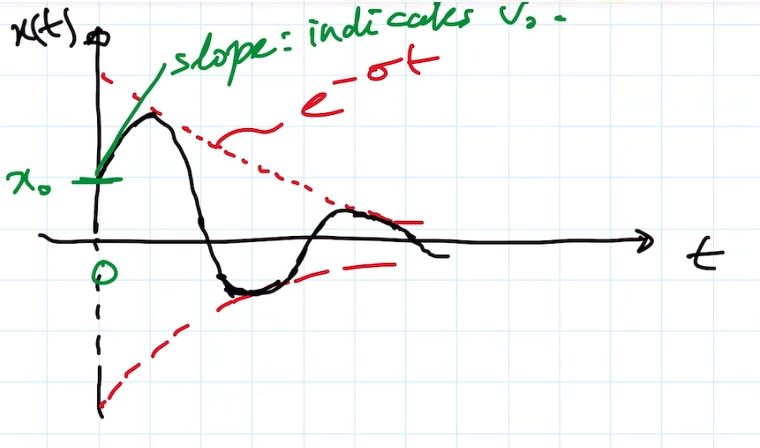 x(t)
slope: indicates v₀.
e^-σt
x₀
0
t